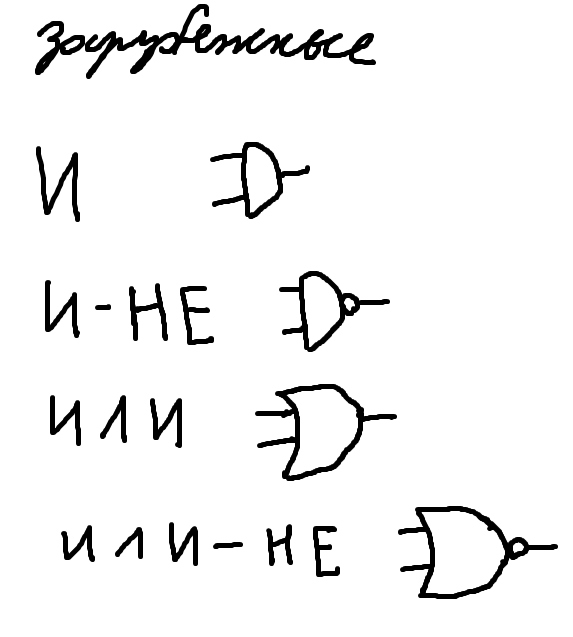 зарубежные
И
И-НЕ
ИЛИ
ИЛИ-НЕ